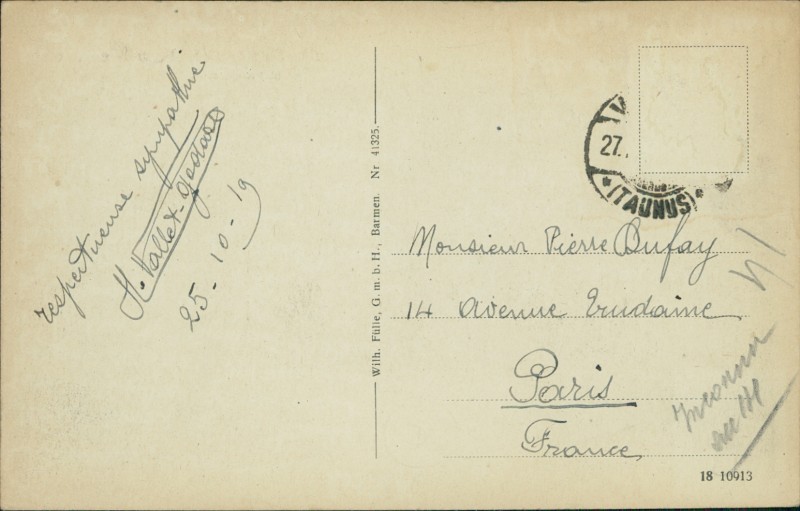 respectueuse sympathie
H. Vallet-
25-10-19
Wilh. Fülle, G. m. b. H., Barmen. Nr 41325.
27.
(TAUNUS)
Monsieur Pierre Dufay
14 Avenue Trudaine
Paris
France
Inconnu
au 14
18 10913